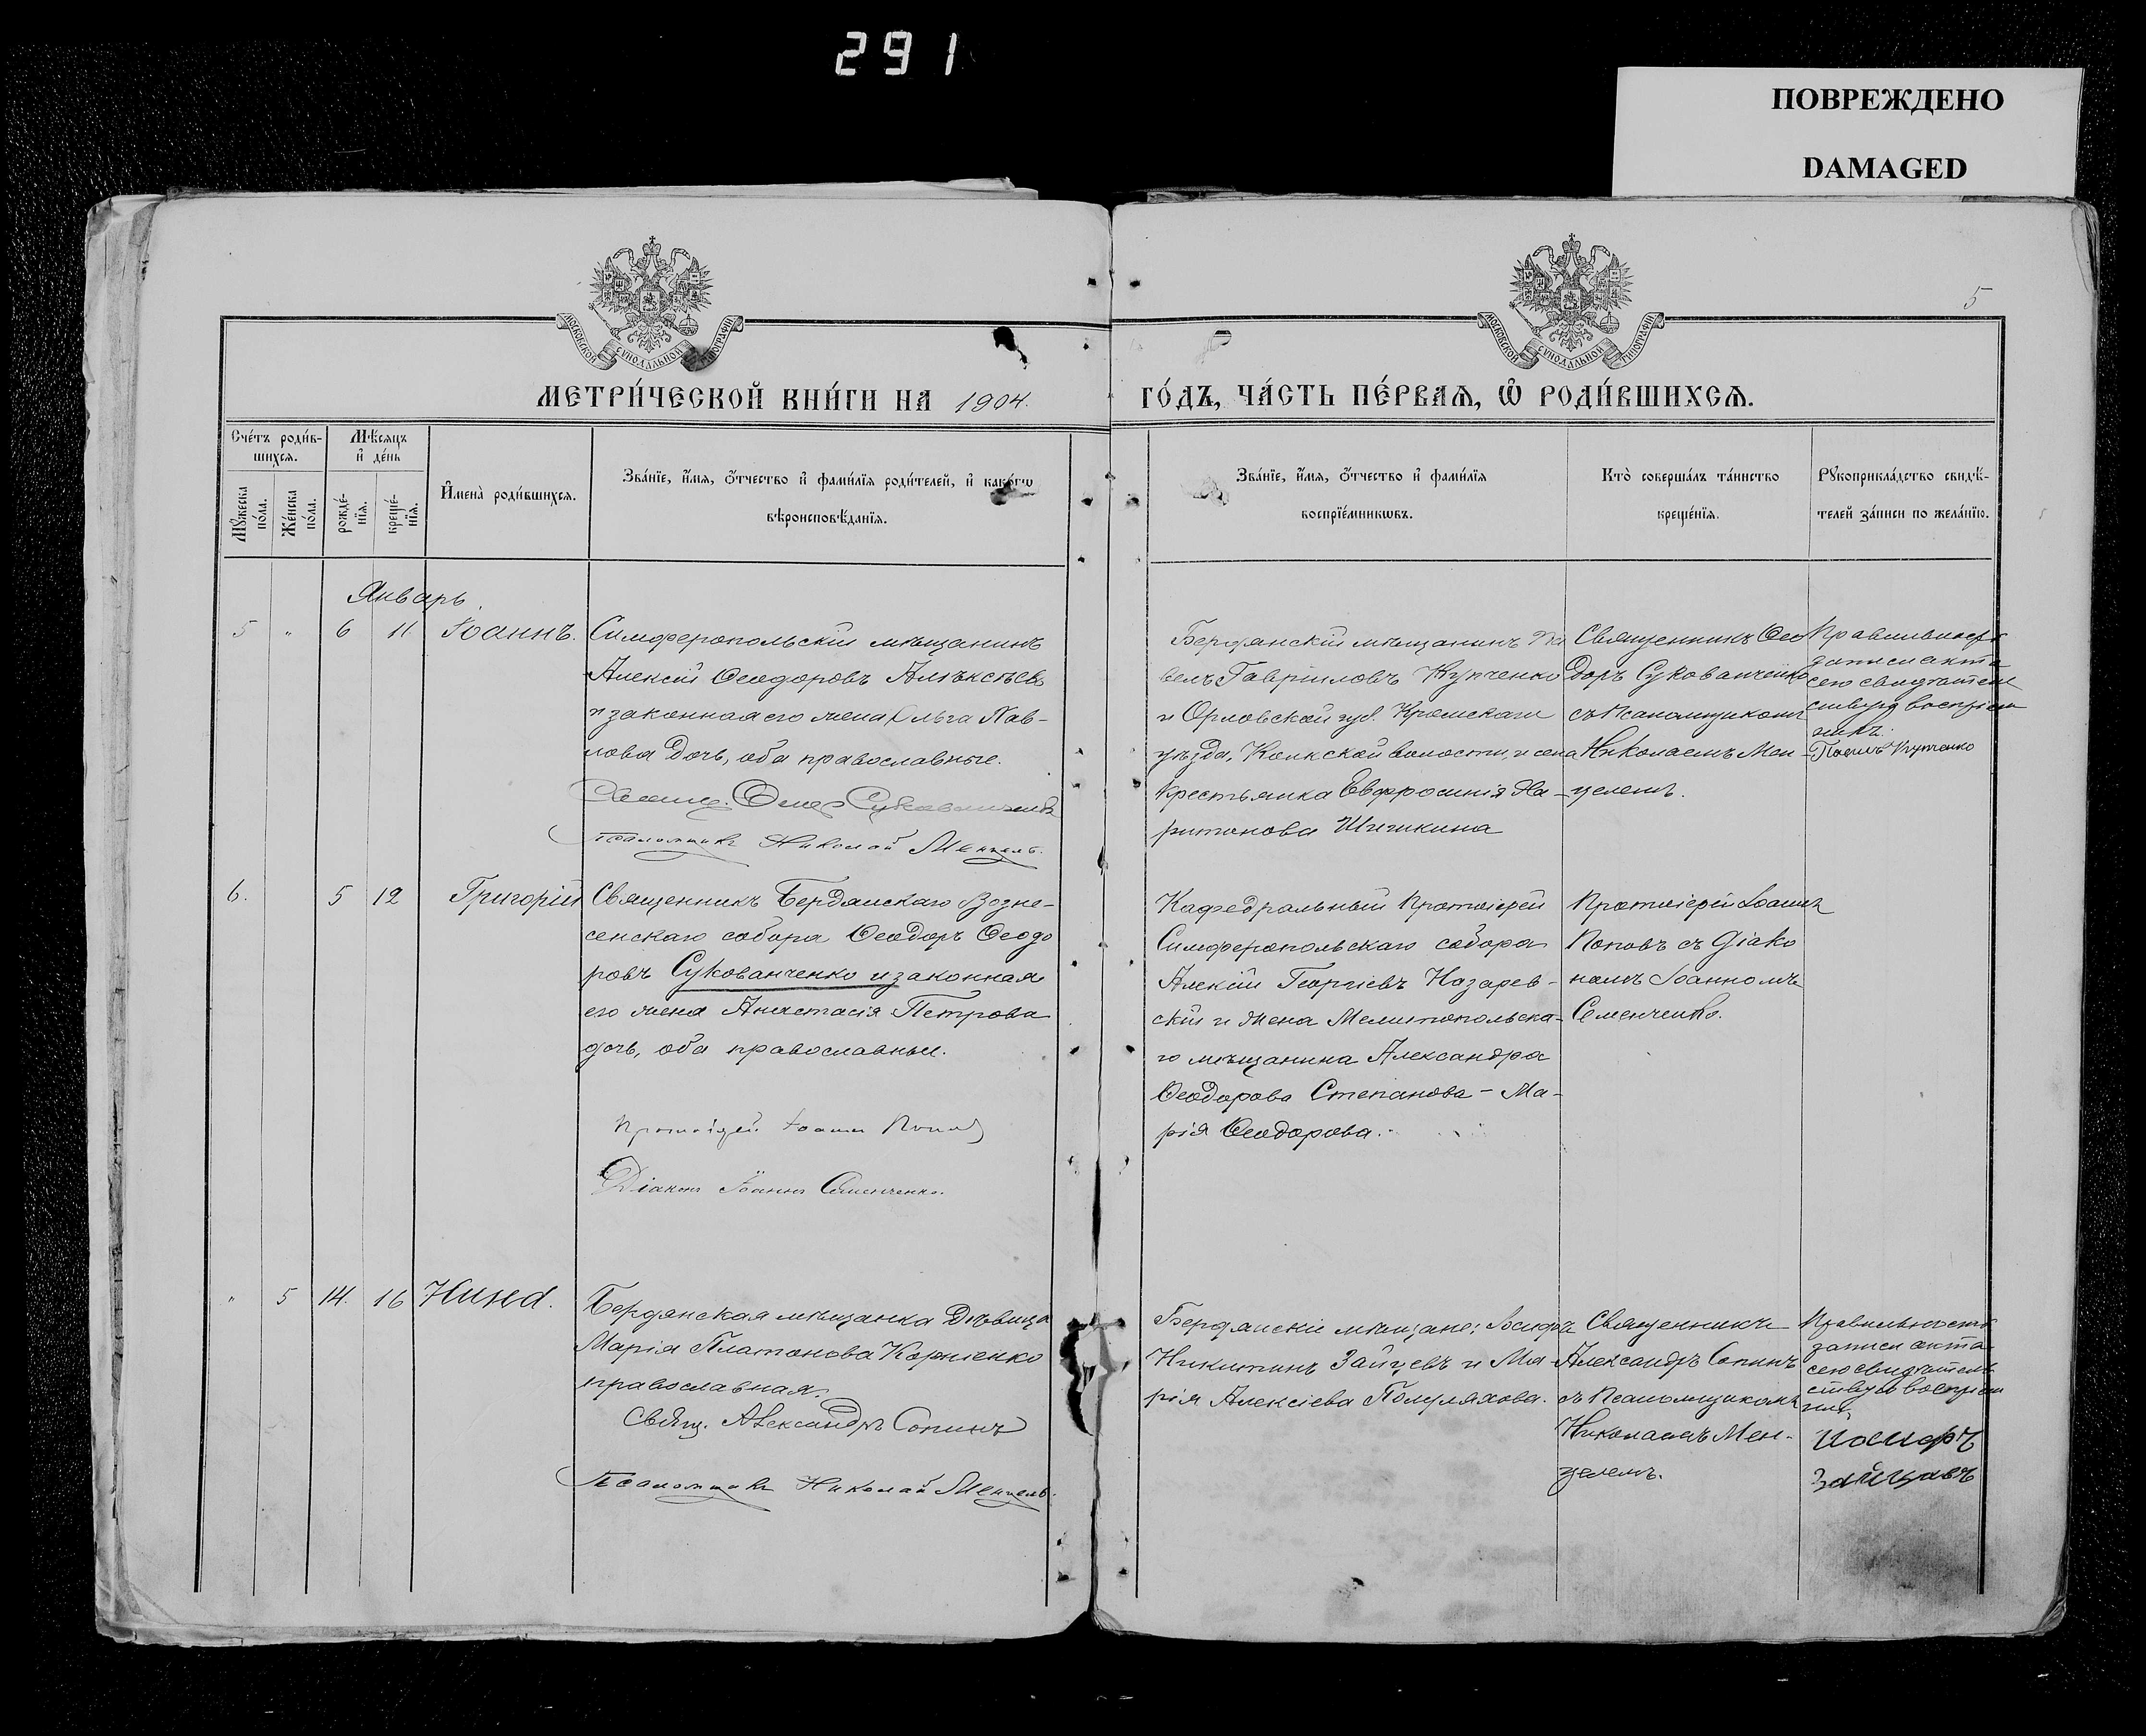 291
ПОВРЕЖДЕНО
DAMAGED
5
МОСКОВСКОЙ СѴНОДАЛЬНОЙ ТИПОГРАФІИ
МОСКОВСКОЙ СѴНОДАЛЬНОЙ ТИПОГРАФІИ
МЕТРИ́ЧЕСКОЙ КНИ́ГИ НА 1904. ГО́ДЪ, ЧА́СТЬ ПЕ́РВАѦ, Ѡ҆ РОДИ́ВШИХСѦ.
Сче́тъ роди́в-
шихсѧ.
Мꙋ́жеска по́ла.
Же́нска по́ла.
Мѣ́сѧцъ
и҆ де́нь
рожде́-
нїѧ.
креще́-
нїѧ.
И҆мена̀ роди́вшихсѧ.
Зва́нїе, и҆́мѧ, ѻ҆́тчество и҆ фами́лїѧ роди́телей, и҆ како́гѡ
вѣроисповѣ́данїѧ.
Зва́нїе, и҆́мѧ, ѻ҆́тчество и҆ фами́лїѧ
воспрїе́мникѡвъ.
Кто̀ соверша́лъ та́инство
креще́нїѧ.
Рꙋкоприкла́дство свидѣ́-
телей за́писи по жела́нїю.
Январь.
5 " 6 11 Іоаннъ.
Симферопольскій мѣщанинъ
Алексій Ѳеодоровъ Алѣксѣевъ
и законная его жена Ольга Пав-
лова дочь, оба православные.
Псаломщикъ Николай Менцель.
Бердянскій мѣщанинъ Па
велъ Гавріиловъ Купченко
и Орловской губ. Кромскаго
уѣзда, Кошкской волости, и села
крестьянка Евфросинія Ха-
ритонова Шишкина
Священникъ Ѳео
доръ Сукованченко
съ псаломщикомъ
Николаемъ Мен-
целемъ.
Правильность
записи акта
сего свидѣтель
ствую воспріем
никъ.
Павелъ Купченко
6. 5 12 Григорій
Священникъ Бердянскаго Возне-
сенскаго собора Ѳеодоръ Ѳеодо
ровъ Сукованченко и законная
его жена Анастасія Петрова
дочь, оба православные.
Протоіерей Іоаннъ Поповъ
Діаконъ Іоаннъ Семенченко.
Кафедральный протоіерей
Симферопольскаго собора
Алексій Георгіевъ Назарев-
скій и жена Мелитопольска-
го мѣщанина Александра
Ѳеодорова Степанова - Ма-
рія Ѳеодорова.
Протоіерей Іоаннъ
Поповъ съ діако
номъ Іоанномъ
Семенченко.
" 5 14. 16 Нина.
Бердянская мѣщанка дѣвица
Марія Платонова Корніенко
православная.
Свящ. Александръ Сопинъ
Псаломщикъ Николай Менцель.
Бердянскіе мѣщане: Іосифъ
Никитинъ Зайцевъ и Ма-
рія Алексіева Полуляхова.
Священникъ
Александръ Сопинъ
съ псаломщикомъ
Николаемъ Мен-
целемъ.
Правильность
записи акта
сего свидѣтель
ствую воспріем
никъ
Иосифъ
Зайцевъ